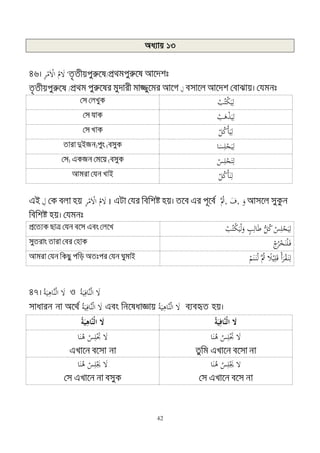 অধ্যায় ১৩
৪৬। لَامُ الْأَمْرِ তৃতীয়পুরুষে/প্রথমপুরুষে আদেশঃ
তৃতীয়পুরুষে /প্রথম পুরুষের মুদারী মাজ্জুমের আগে لِ বসালে আদেশ বোঝায়। যেমনঃ
সে লেখুক لِيَكْتُبْ
সে যাক لِيَذْهَبْ
সে খাক لِيَأْكُلْ
তারা দুইজন(পুং) বসুক لِيَجْلِسَا
সে( একজন মেয়ে) বসুক لِتَجْلِسْ
আমরা যেন খাই لِنَأْكُلْ
এই لِ কে বলা হয় لَامُ الْأَمْرِ । এটা যের বিশিষ্ট হয়। তবে এর পূর্বে وَ ,فَ ,ثُمَّ আসলে সুকুন
বিশিষ্ট হয়। যেমনঃ
প্রত্যেক ছাত্র যেন বসে এবং লেখে لِيَجْلِسْ كُلُّ طَالِبٍ وَلْيَكْتُبْ
সুতরাং তারা বের হোক فَلْيَخْرُجْ
আমরা যেন কিছু পড়ি অতঃপর যেন ঘুমাই لِنَقْرَأْ قَلِيلًا ثُمَّ لْنَنَمْ
৪৭। لَا النَّاهِيَةُ ও لَا النَّافِيَةُ
সাধারন না অর্থে لَا النَّافِيَةُ এবং নিষেধাজ্ঞায় لَا النَّاهِيَةُ ব্যবহৃত হয়।
لَا النَّاهِيَةُ لَا النَّافِيَةُ
لَا تَجْلِسْ هُنَا لَا تَجْلِسُ هُنَا
এখানে বসো না তুমি এখানে বসো না
لَا يَجْلِسْ هُنَا لَا يَجْلِسُ هُنَا
সে এখানে না বসুক সে এখানে বসে না
42